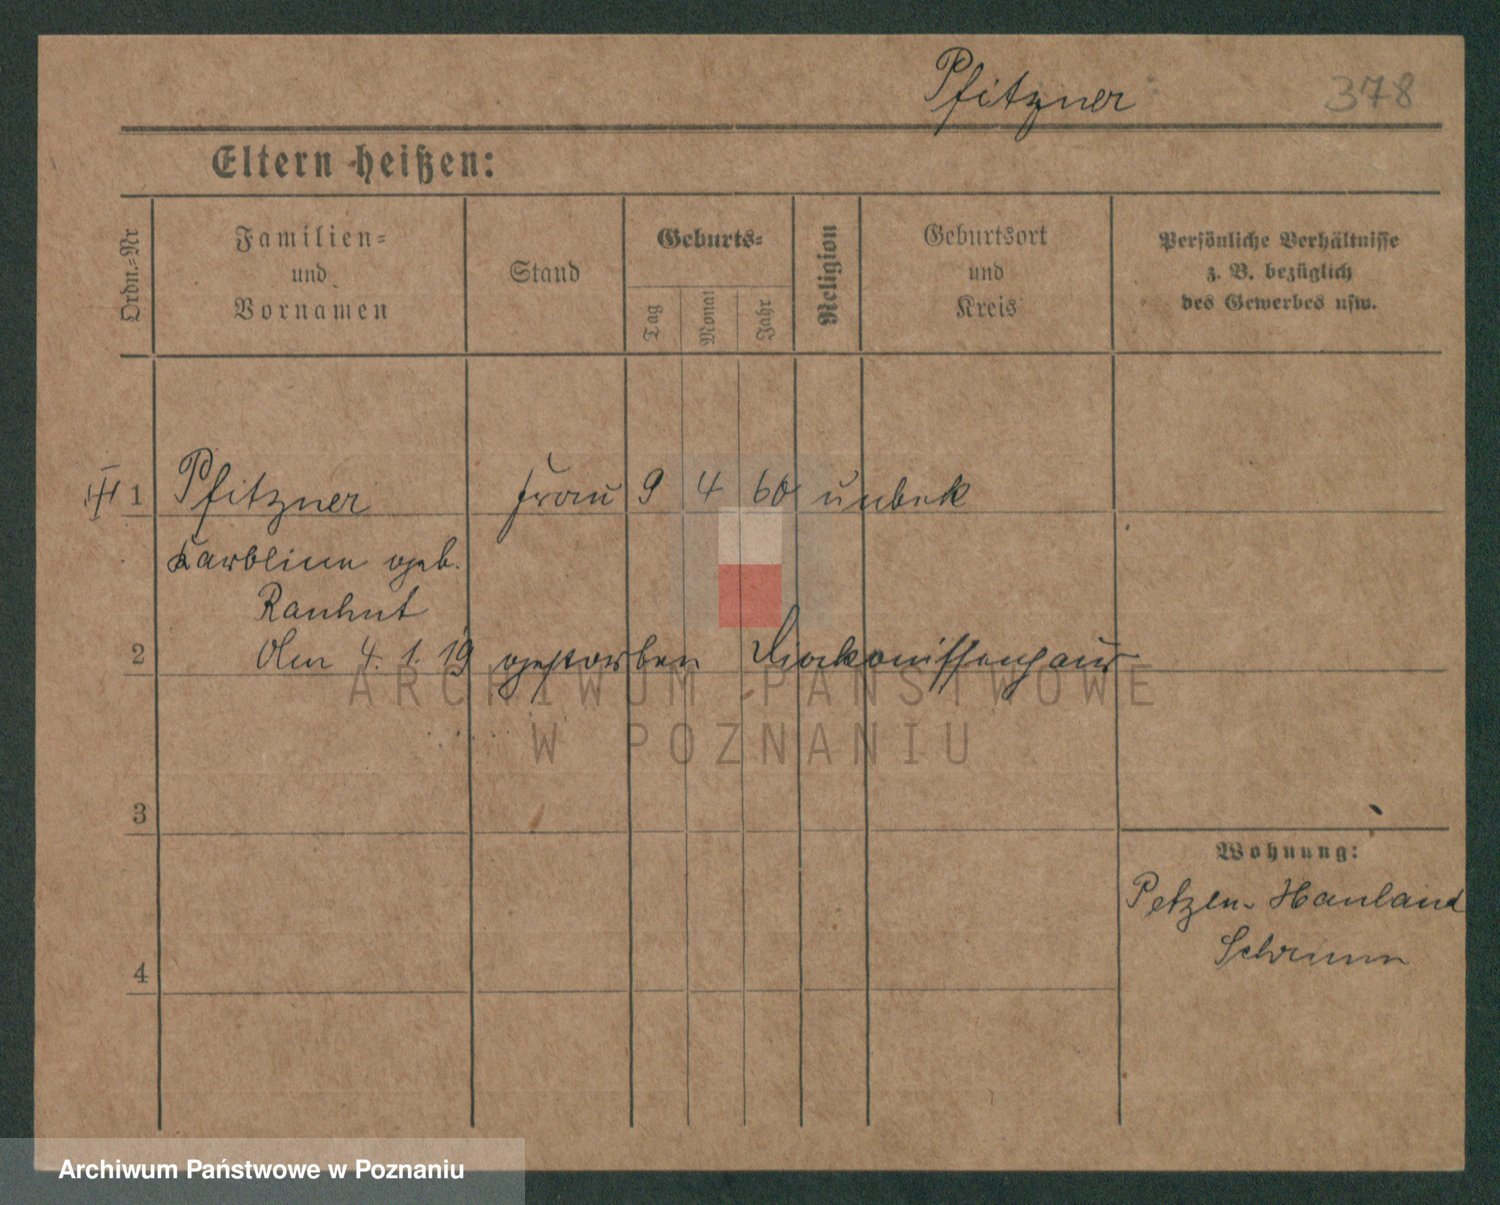 Pfitzner 378
Eltern heißen:
Ordn.-Nr
Familien-
und
Vornamen
Stand
Geburts-
Tag
Monat
Jahr
Religion
Geburtsort
und
Kreis
Persönliche Verhältnisse
z. B. bezüglich
des Gewerbes usw.
1 Pfitzner Frau 9 4 60 unbek
Karoline geb.
Rauhut
2 Am 4. 1. 19 gestorben Diakonissenhaus
ARCHIWUM PAŃSTWOWE
W POZNANIU
3
Wohnung:
Petzen-Hauland
Schrimm
4
Archiwum Państwowe w Poznaniu